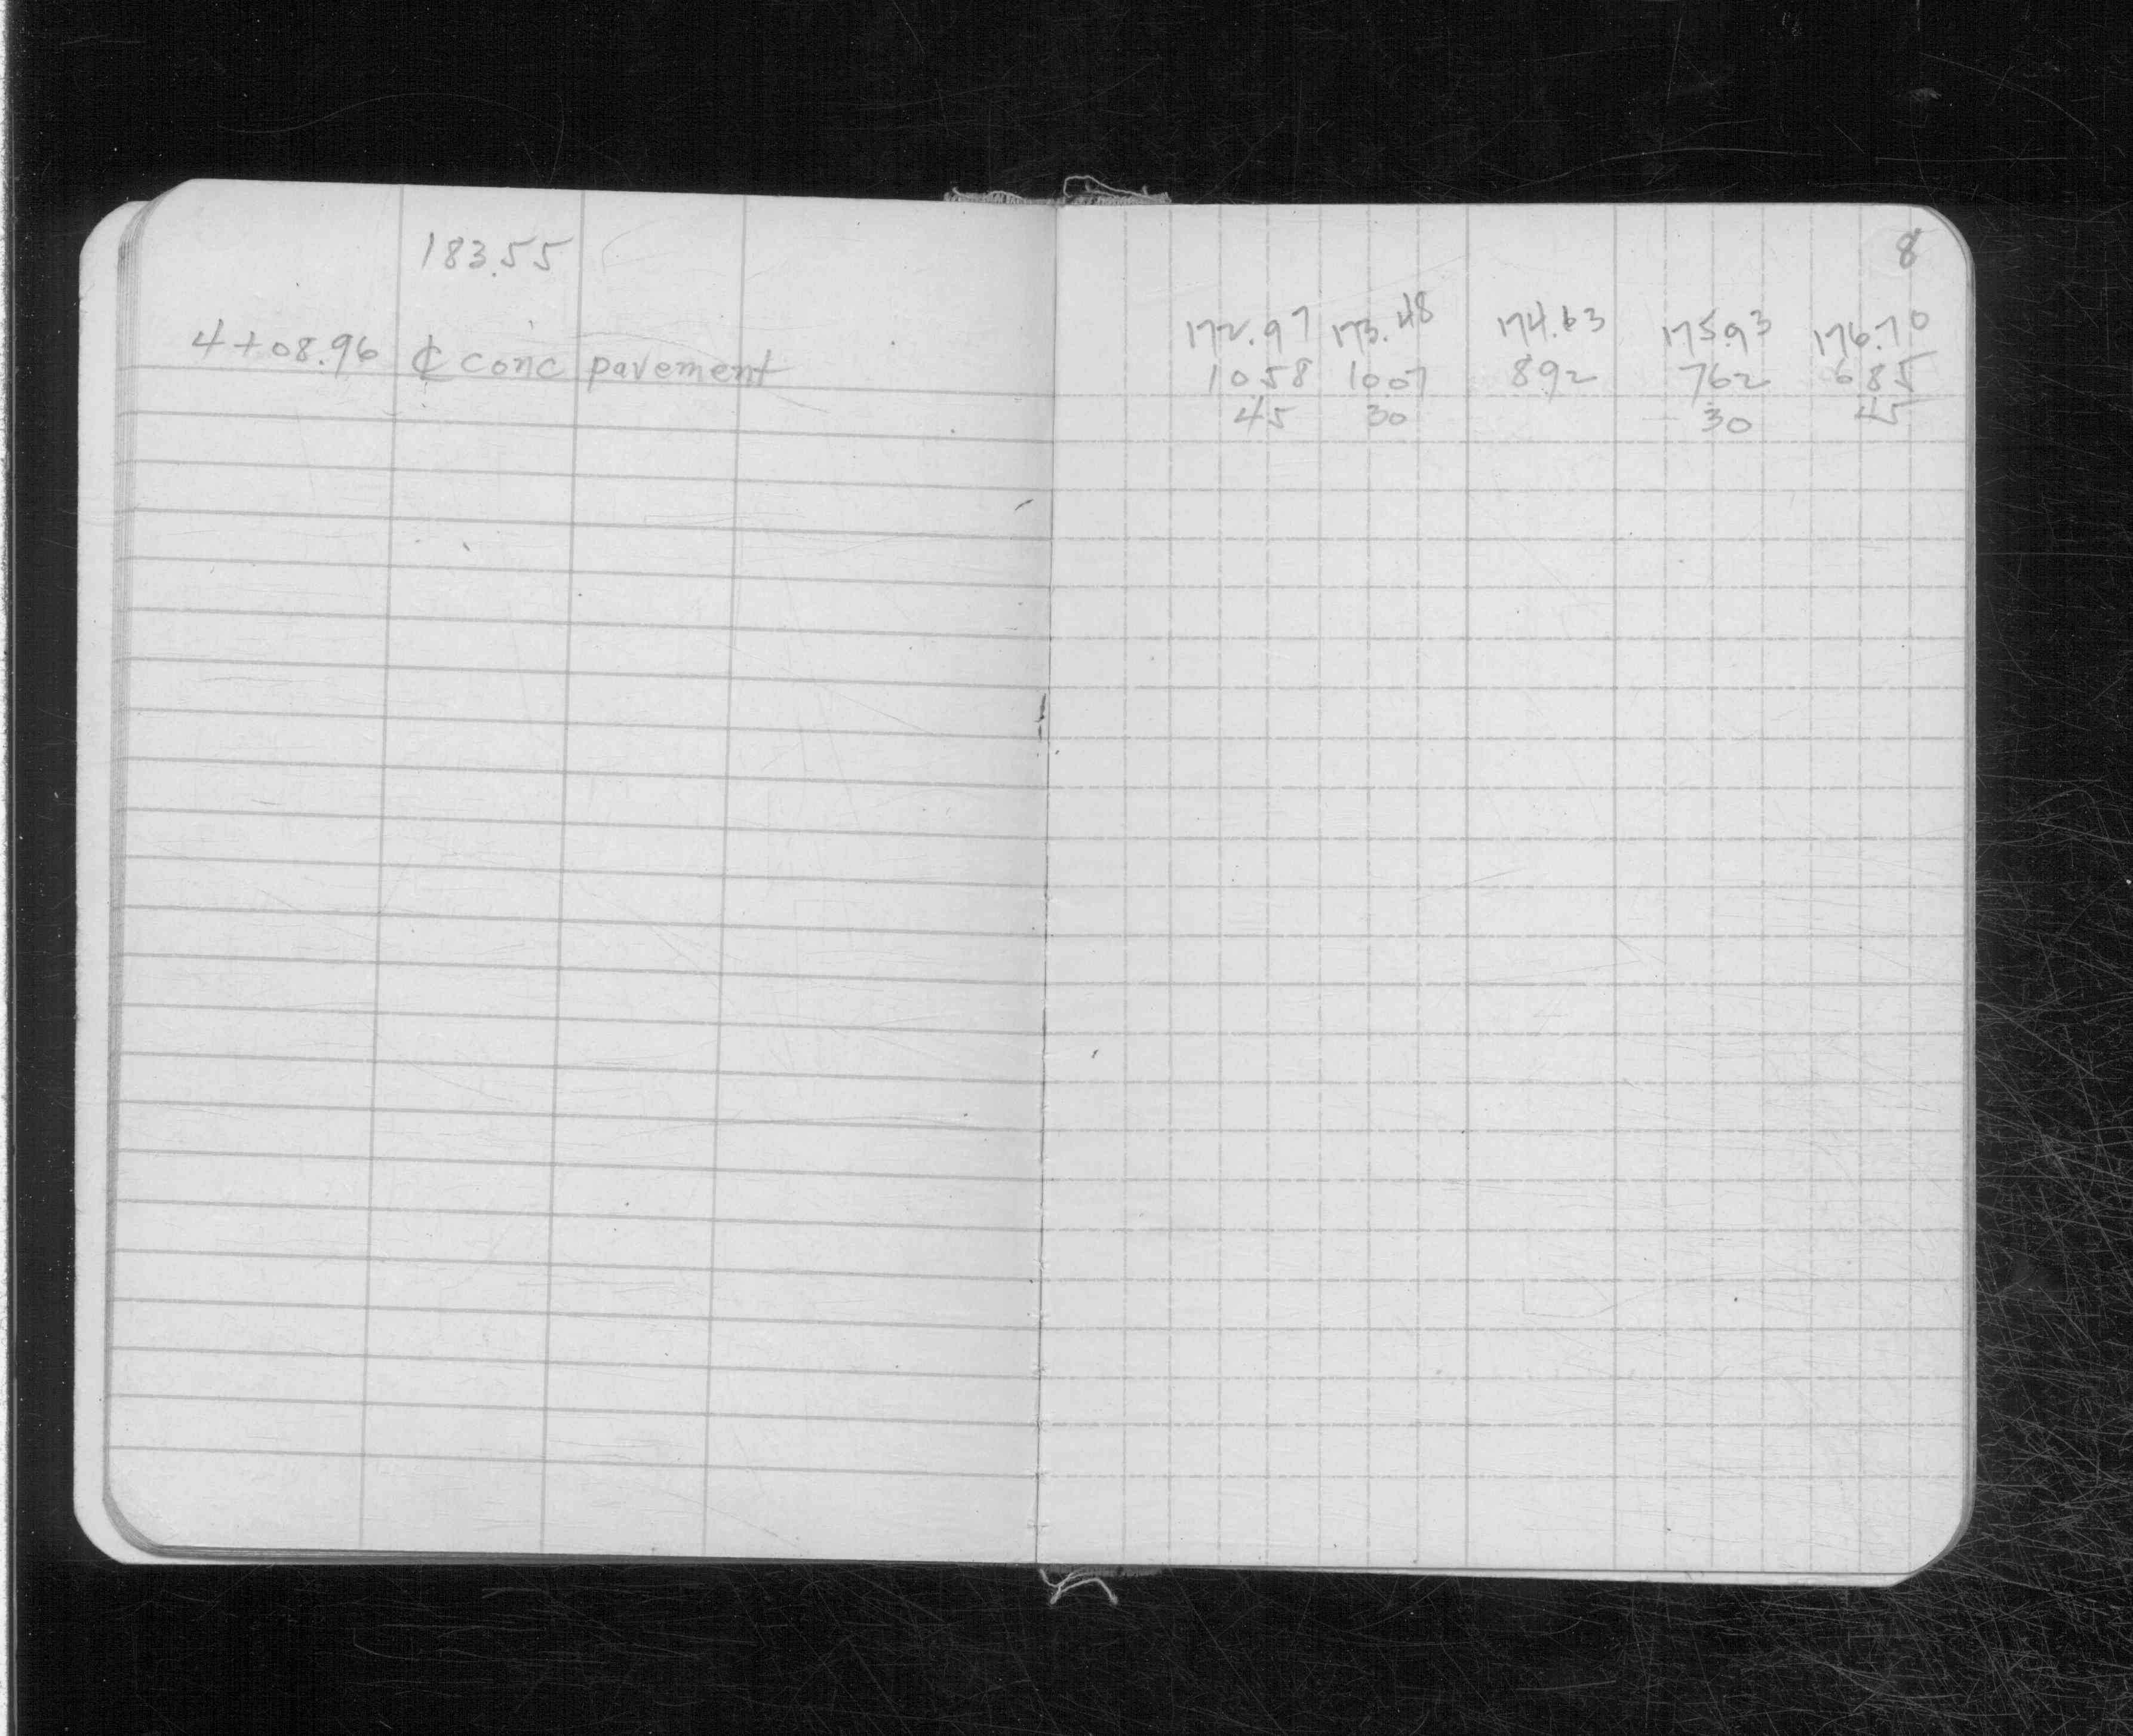 183.55
4+08.96 ₵ conc pavement
8
172.97 173.48 174.63 175.93 176.70
10 58 10 07 892 762 685
45 30 30 45